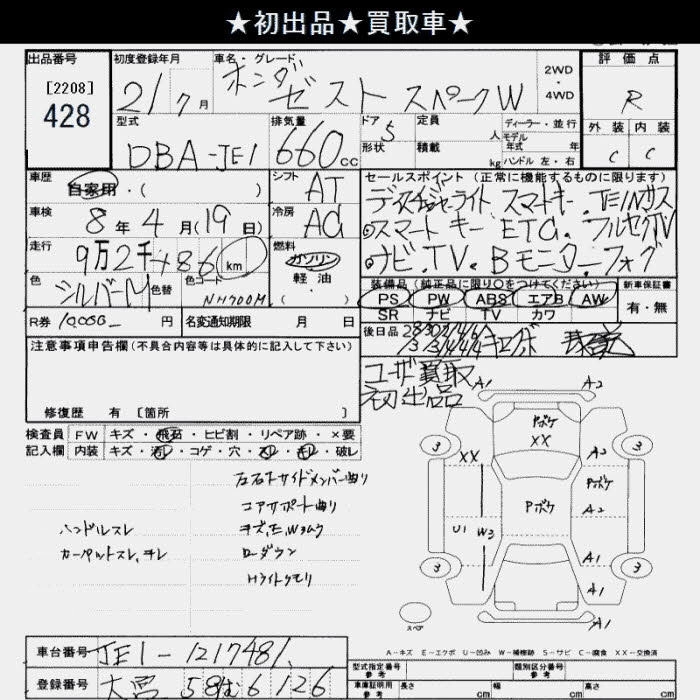 ★初出品★買取車★
出品番号 初度登録年月 車名・グレード 評価点
[2208]
428
21 7月 ホンダ ゼスト スパークW 2WD・4WD R
型式 排気量 ドア 5 定員 人 ディーラー・並行 外装 内装
DBA-JE1 660cc 形状 積載 kg モデル年式 年 ハンドル 左・右 C C
車歴 自家用・( ) シフト AT セールスポイント(正常に機能するものに限ります)
ディスチャージライト スマートキー TEIN
車検 8年4月(19日) 冷房 AC スマートキー ETC フルセグTV
走行 9万2千 86 km 燃料 ガソリン 軽油 ( ) ナビ.TV.Bモニター.フォグ
色 シルバーM 色替 色コード NH700M 装備品(純正品に限り○をつけてください) 新車保証書
PS PW ABS エアB AW 有・無
SR ナビ TV カワ
R券 円 名変通知期限 月 日 後日品
注意事項申告欄(不具合内容等は具体的に記入して下さい)
ユーザー買取
初出品
修復歴 有 [箇所 ]
検査員記入欄 FW キズ・飛石・ヒビ割・リペア跡・×要
内装 キズ・汚レ・コゲ・穴・スレ・キレ・破レ
左右フサイドメンバー曲り
コアサポート曲り
ハンドルスレ キズ,E,Wコムク
カーペットスレ,キレ ローダウン
Hライトクモリ
A1 A2
ヤボケ
XX
3 3
XX A2
Pボケ
Pボケ A2
U1 W3
A1
3 3
A1
スペア A1
A-キズ E-エクボ U-凹み W-補修跡 S-サビ C-腐食 XX-交換済
車台番号 JE1-1217481 型式指定番号 参考 類別区分番号 参考
登録番号 大宮 58 6126 車庫証明用 参考 長さ cm 幅 cm 高さ cm